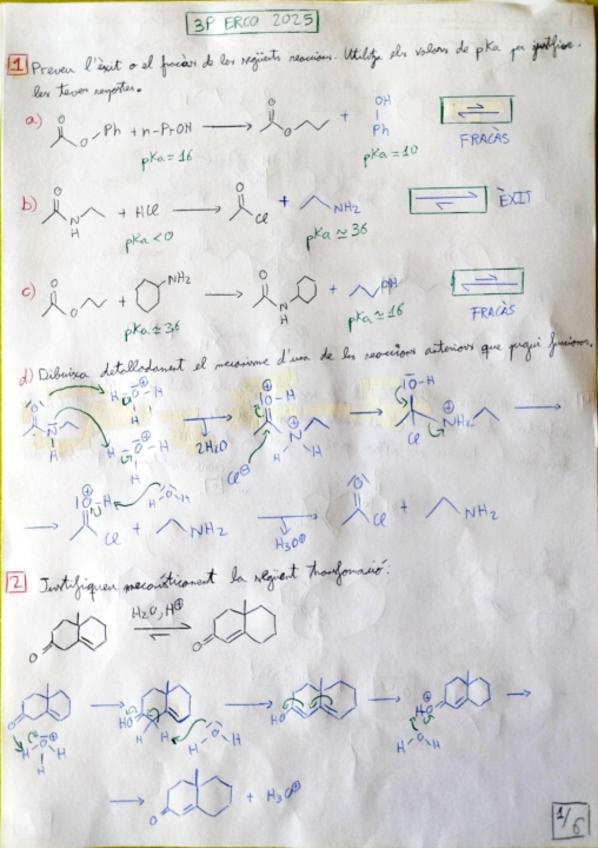 3P ERCO 2025
1 Preveu l'èxit o el fracàs de les següents reaccions. Utilitza els valors de pKa per justificar
les teves respostes.
a) O O Ph + n-PrOH O O + OH Ph
pKa = 16 pKa = 10 FRACÀS
b) O N H + HCl O Cl + NH2 ÈXIT
pKa < 0 pKa ≃ 36
c) O O + NH2 O N H + OH
pKa ≃ 36 pKa ≃ 16 FRACÀS
d) Dibuixa detalladament el mecanisme d'una de les reaccions anteriors que pugui funcionar.
2H2O Cl⊖ Cl NH2
O H Cl + NH2 H3O⊕ O Cl + NH2
2 Justifiqueu mecanísticament la següent transformació:
O H2O, H⊕ O
O HO HO HO
O + H3O⊕
1/6